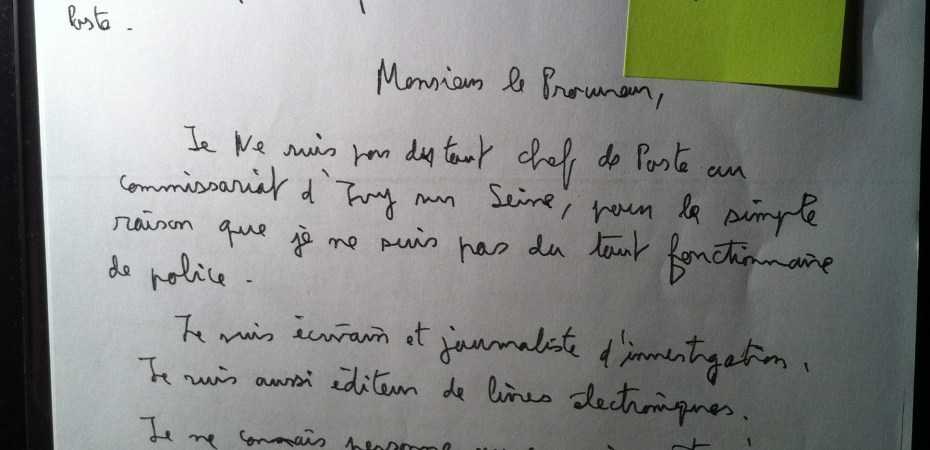 Poste.
Monsieur le Procureur,
Je Ne suis pas du tout chef de Poste au
commissariat d'Ivry sur Seine, pour la simple
raison que je ne suis pas du tout fonctionnaire
de police.
Je suis écrivain et journaliste d'investigation.
Je suis aussi éditeur de livres électroniques.
Je ne connais personne